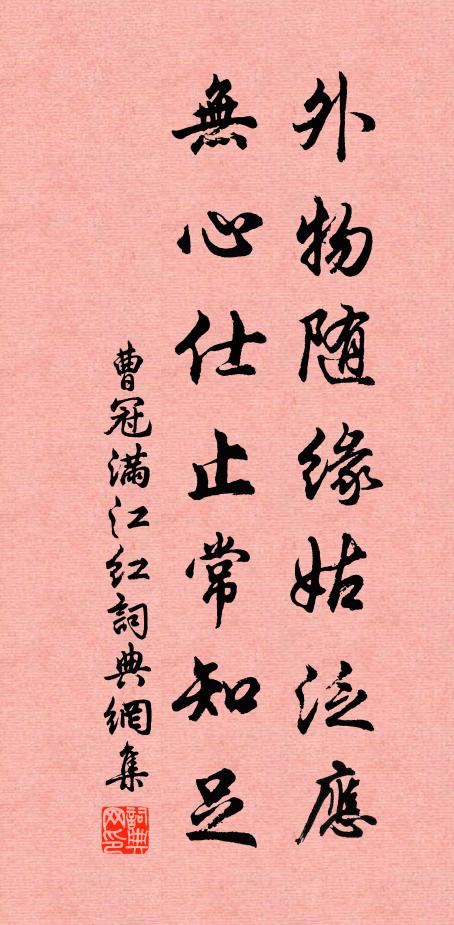 外物随緣姑泛應
無心仕止常知足
曹冠滿江红詞典網集
詞典网印